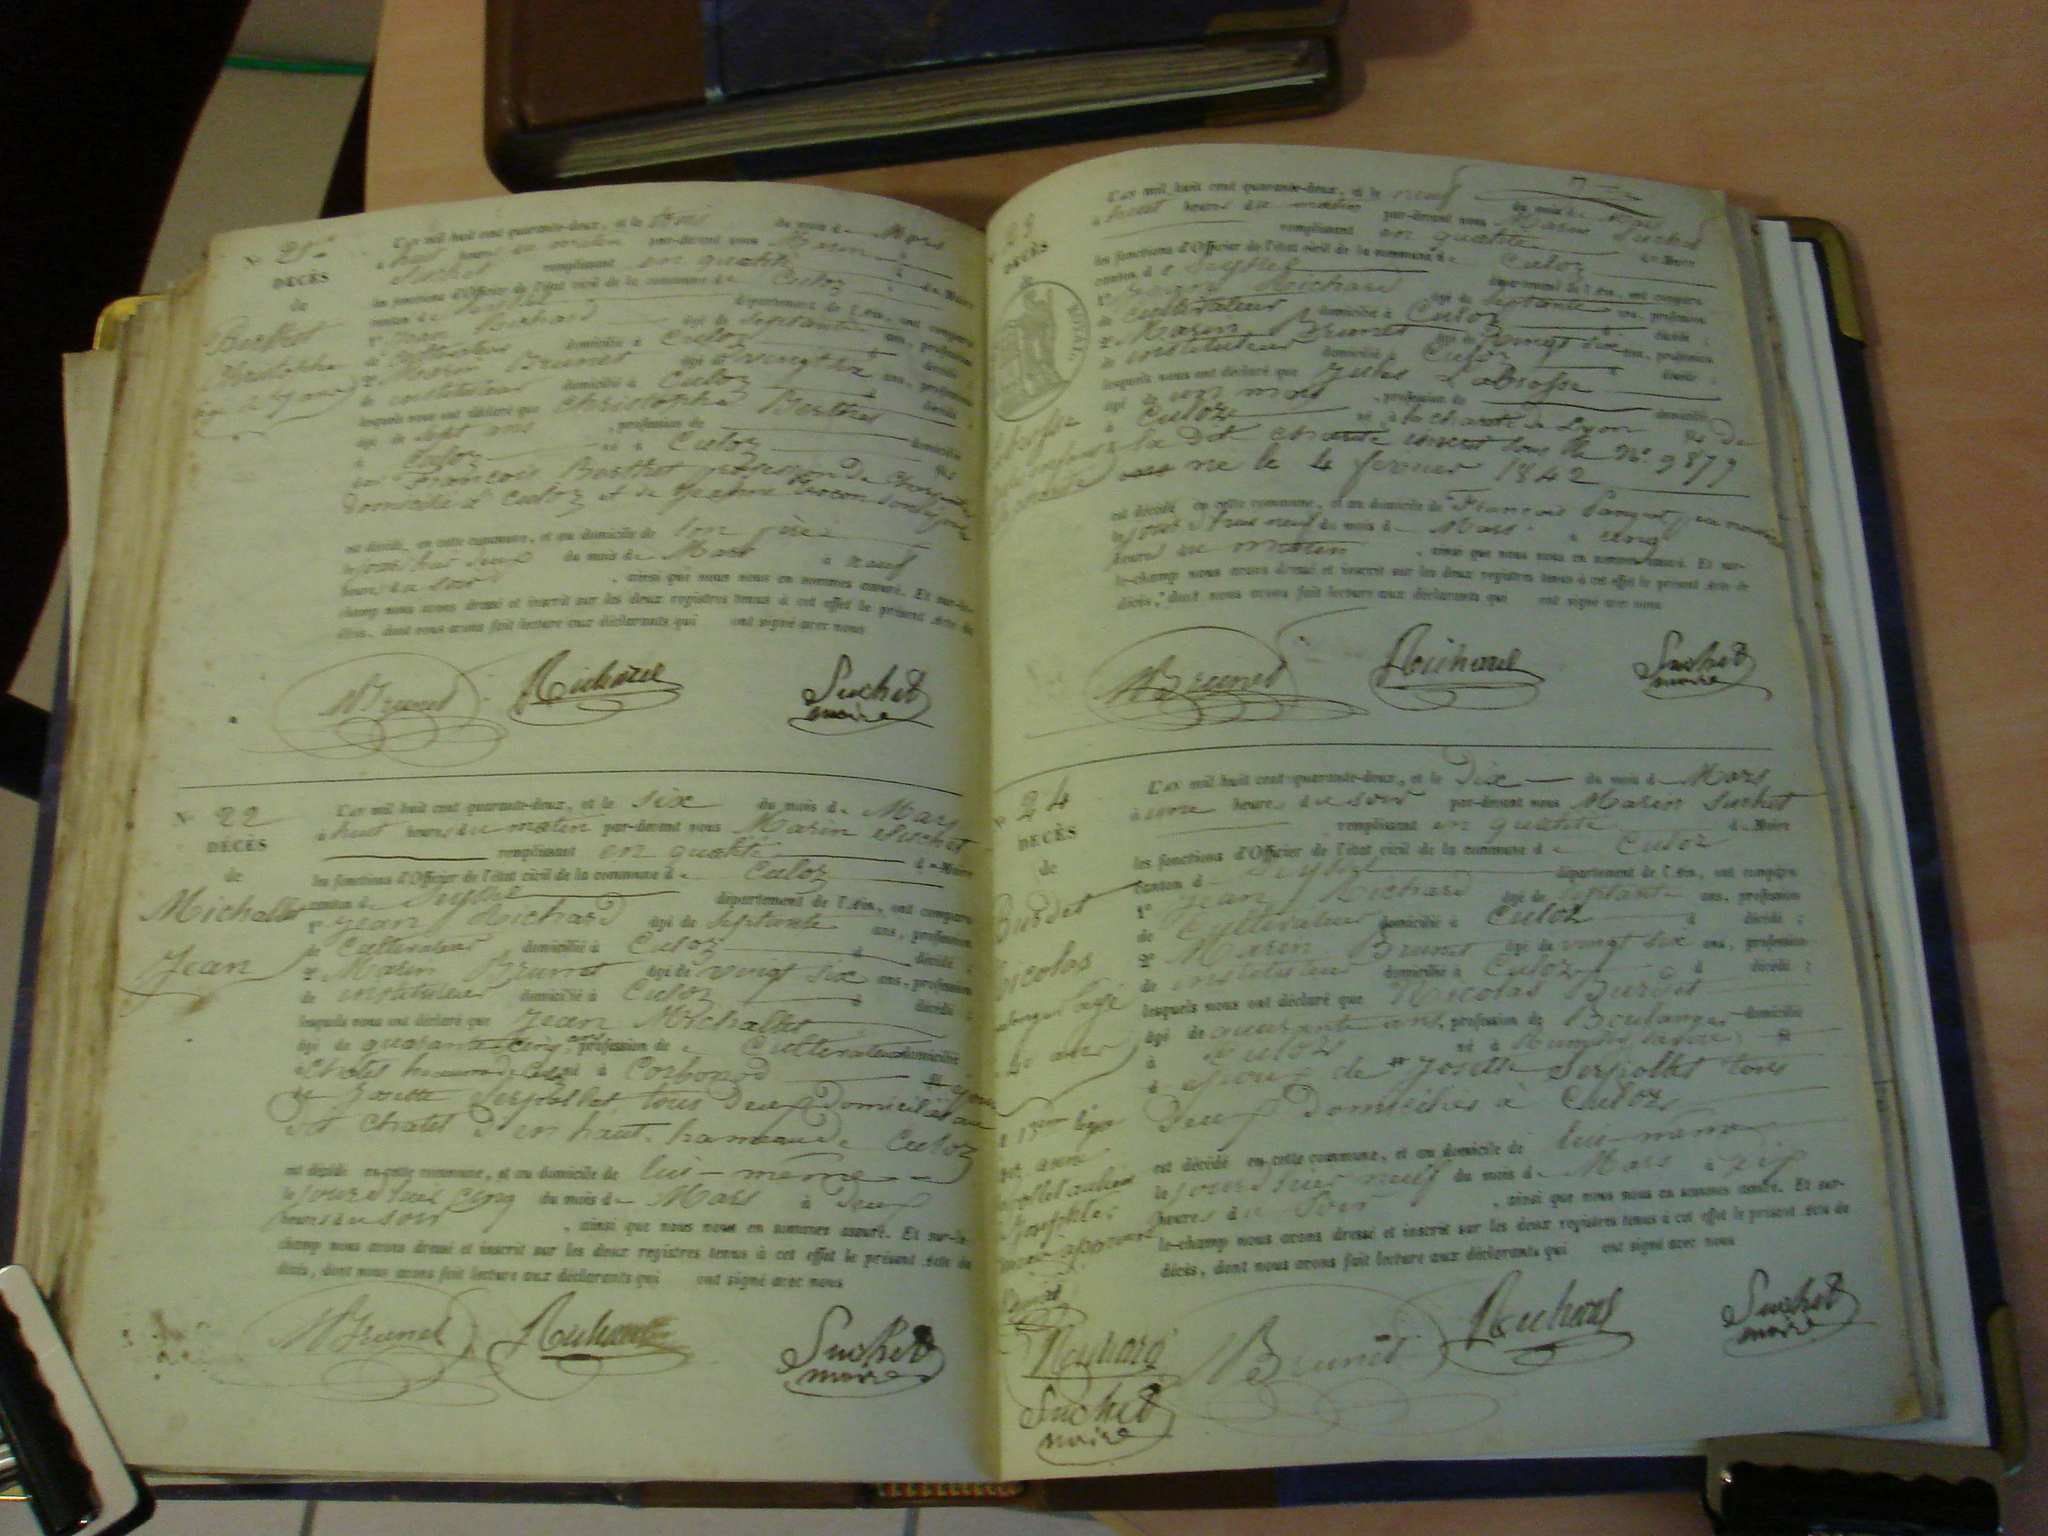 N° 21
DECÈS
de
Berthet
Christophe
L'an mil huit cent quarante-deux, et le trois du mois de Mars
à huit heures du matin par-devant nous Marin
Suchet remplissant en qualité de Maire
les fonctions d'Officier de l'état civil de la commune de Culoz
canton de Seyssel département de l'Ain, ont comparu
1° Jean Richard âgé de septante ans, profession
de Cultivateur domicilié à Culoz
2° Marin Brunet âgé de vingt six ans, profession
de instituteur domicilié à Culoz
lesquels nous ont déclaré que Christophe Berthet
âgé de sept ans, profession de domicilié
à Culoz né à Culoz fils
de François Berthet profession de
domicilié à Culoz et de
est décédé en cette commune, et au domicile de son père
le jour d'hier du mois de Mars à neuf
heures du soir, ainsi que nous nous en sommes assuré. Et sur-le-
champ nous avons dressé et inscrit sur les deux registres tenus à cet effet le présent Acte de
décès, dont nous avons fait lecture aux déclarants qui ont signé avec nous
MBrunet Richard Suchet
maire
N° 22
DECÈS
de
Michallet
Jean
L'an mil huit cent quarante-deux, et le six du mois de Mars
à huit heures du matin par-devant nous Marin Suchet
remplissant en qualité de Maire
les fonctions d'Officier de l'état civil de la commune de Culoz
canton de Seyssel département de l'Ain, ont comparu
1° Jean Richard âgé de septante ans, profession
de Cultivateur domicilié à Culoz
2° Marin Brunet âgé de vingt six ans, profession
de instituteur domicilié à Culoz
lesquels nous ont déclaré que Jean Michallet
âgé de quarante cinq ans, profession de Cultivateur domicilié
né à Corbonod
de Josette Serpollet tous deux domiciliés au
dit Chatel d'en haut hameau de Culoz
est décédé en cette commune, et au domicile de lui-même
le jour d'hier cinq du mois de Mars à deux
heures du soir, ainsi que nous nous en sommes assuré. Et sur-le-
champ nous avons dressé et inscrit sur les deux registres tenus à cet effet le présent Acte de
décès, dont nous avons fait lecture aux déclarants qui ont signé avec nous
MBrunet Richard Suchet
maire
23
DECÈS
de
ROYAL
L'an mil huit cent quarante-deux, et le neuf du mois de Mars
à huit heures du matin par-devant nous Marin Suchet
remplissant en qualité de Maire
les fonctions d'Officier de l'état civil de la commune de Culoz
canton de Seyssel département de l'Ain, ont comparu
1° Jean Richard âgé de septante ans, profession
de Cultivateur domicilié à Culoz
2° Marin Brunet âgé de vingt six ans, profession
de instituteur domicilié à Culoz
lesquels nous ont déclaré que Jules Labrosse
âgé de un mois, profession de domicilié
à Culoz né à la charité de Lyon fils de
la dite charité inscrit sous le N° 9879
né le 4 fevrier 1842
est décédé en cette commune, et au domicile de François
le jour d'hui neuf du mois de Mars à une
heures du matin, ainsi que nous nous en sommes assuré. Et sur-
le-champ nous avons dressé et inscrit sur les deux registres tenus à cet effet le présent Acte de
décès, dont nous avons fait lecture aux déclarants qui ont signé avec nous
MBrunet Richard Suchet
maire
24
DECÈS
de
Burdet
Nicolas
L'an mil huit cent quarante-deux, et le Dix du mois de Mars
à une heures du soir par-devant nous Marin Suchet
remplissant en qualité de Maire
les fonctions d'Officier de l'état civil de la commune de Culoz
canton de Seyssel département de l'Ain, ont comparu
1° Jean Richard âgé de septante ans, profession
de Cultivateur domicilié à Culoz
2° Marin Brunet âgé de vingt six ans, profession
de instituteur domicilié à Culoz
lesquels nous ont déclaré que Nicolas Burdet
âgé de quarante ans, profession de Boulanger domicilié
à Culoz né à Rumilly fils
époux de Josette Serpollet tous
deux domiciliés à Culoz
est décédé en cette commune, et au domicile de lui-même
le jour d'hier neuf du mois de Mars à dix
heures du soir, ainsi que nous nous en sommes assuré. Et sur-
le-champ nous avons dressé et inscrit sur les deux registres tenus à cet effet le présent Acte de
décès, dont nous avons fait lecture aux déclarants qui ont signé avec nous
Richard MBrunet Richard Suchet
maire
Suchet
maire